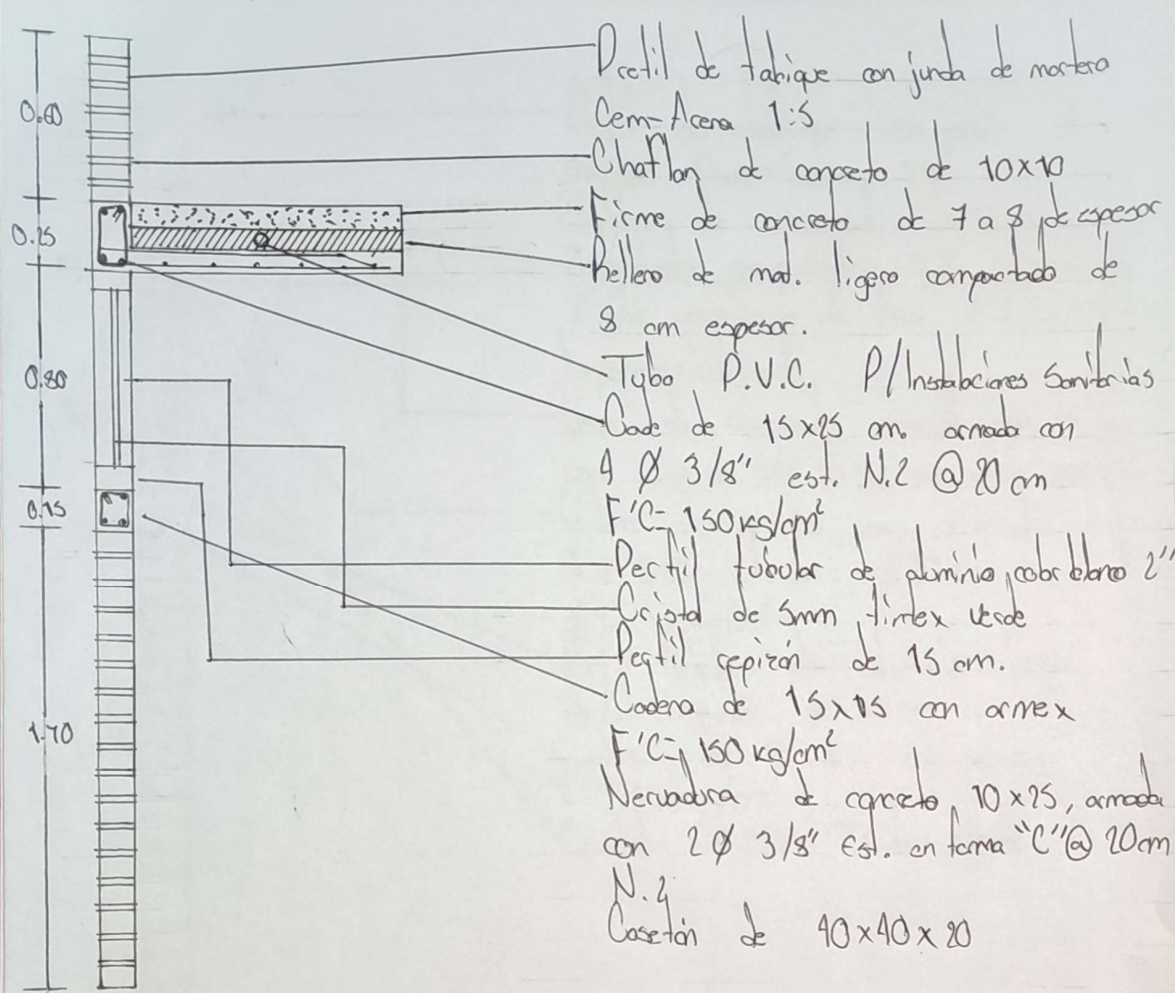 0.60
0.25
0.80
0.15
1.70
Pretil de tabique con junda de mortero
Cem-Arena 1:5
Chaflan de concreto de 10x10
Firme de concreto de 7 a 8 de espesor
Relleno de mat. ligero compactado de
8 cm espesor.
Tubo P.V.C. P/Instalaciones Sanitarias
Cade de 15x25 cm. armada con
4 Ø 3/8" est. N.2 @ 20 cm
F'C= 150 kg/cm²
Perfil tubular de aluminio, color blanco 2"
Cristal de 5mm tintex verde
Perfil repizón de 15 cm.
Cadena de 15x15 con armex
F'C= 150 kg/cm²
Nervadura de concreto, 10x25, armada
con 2 Ø 3/8" Est. en forma "C" @ 20cm
N.2
Casetón de 40x40x20